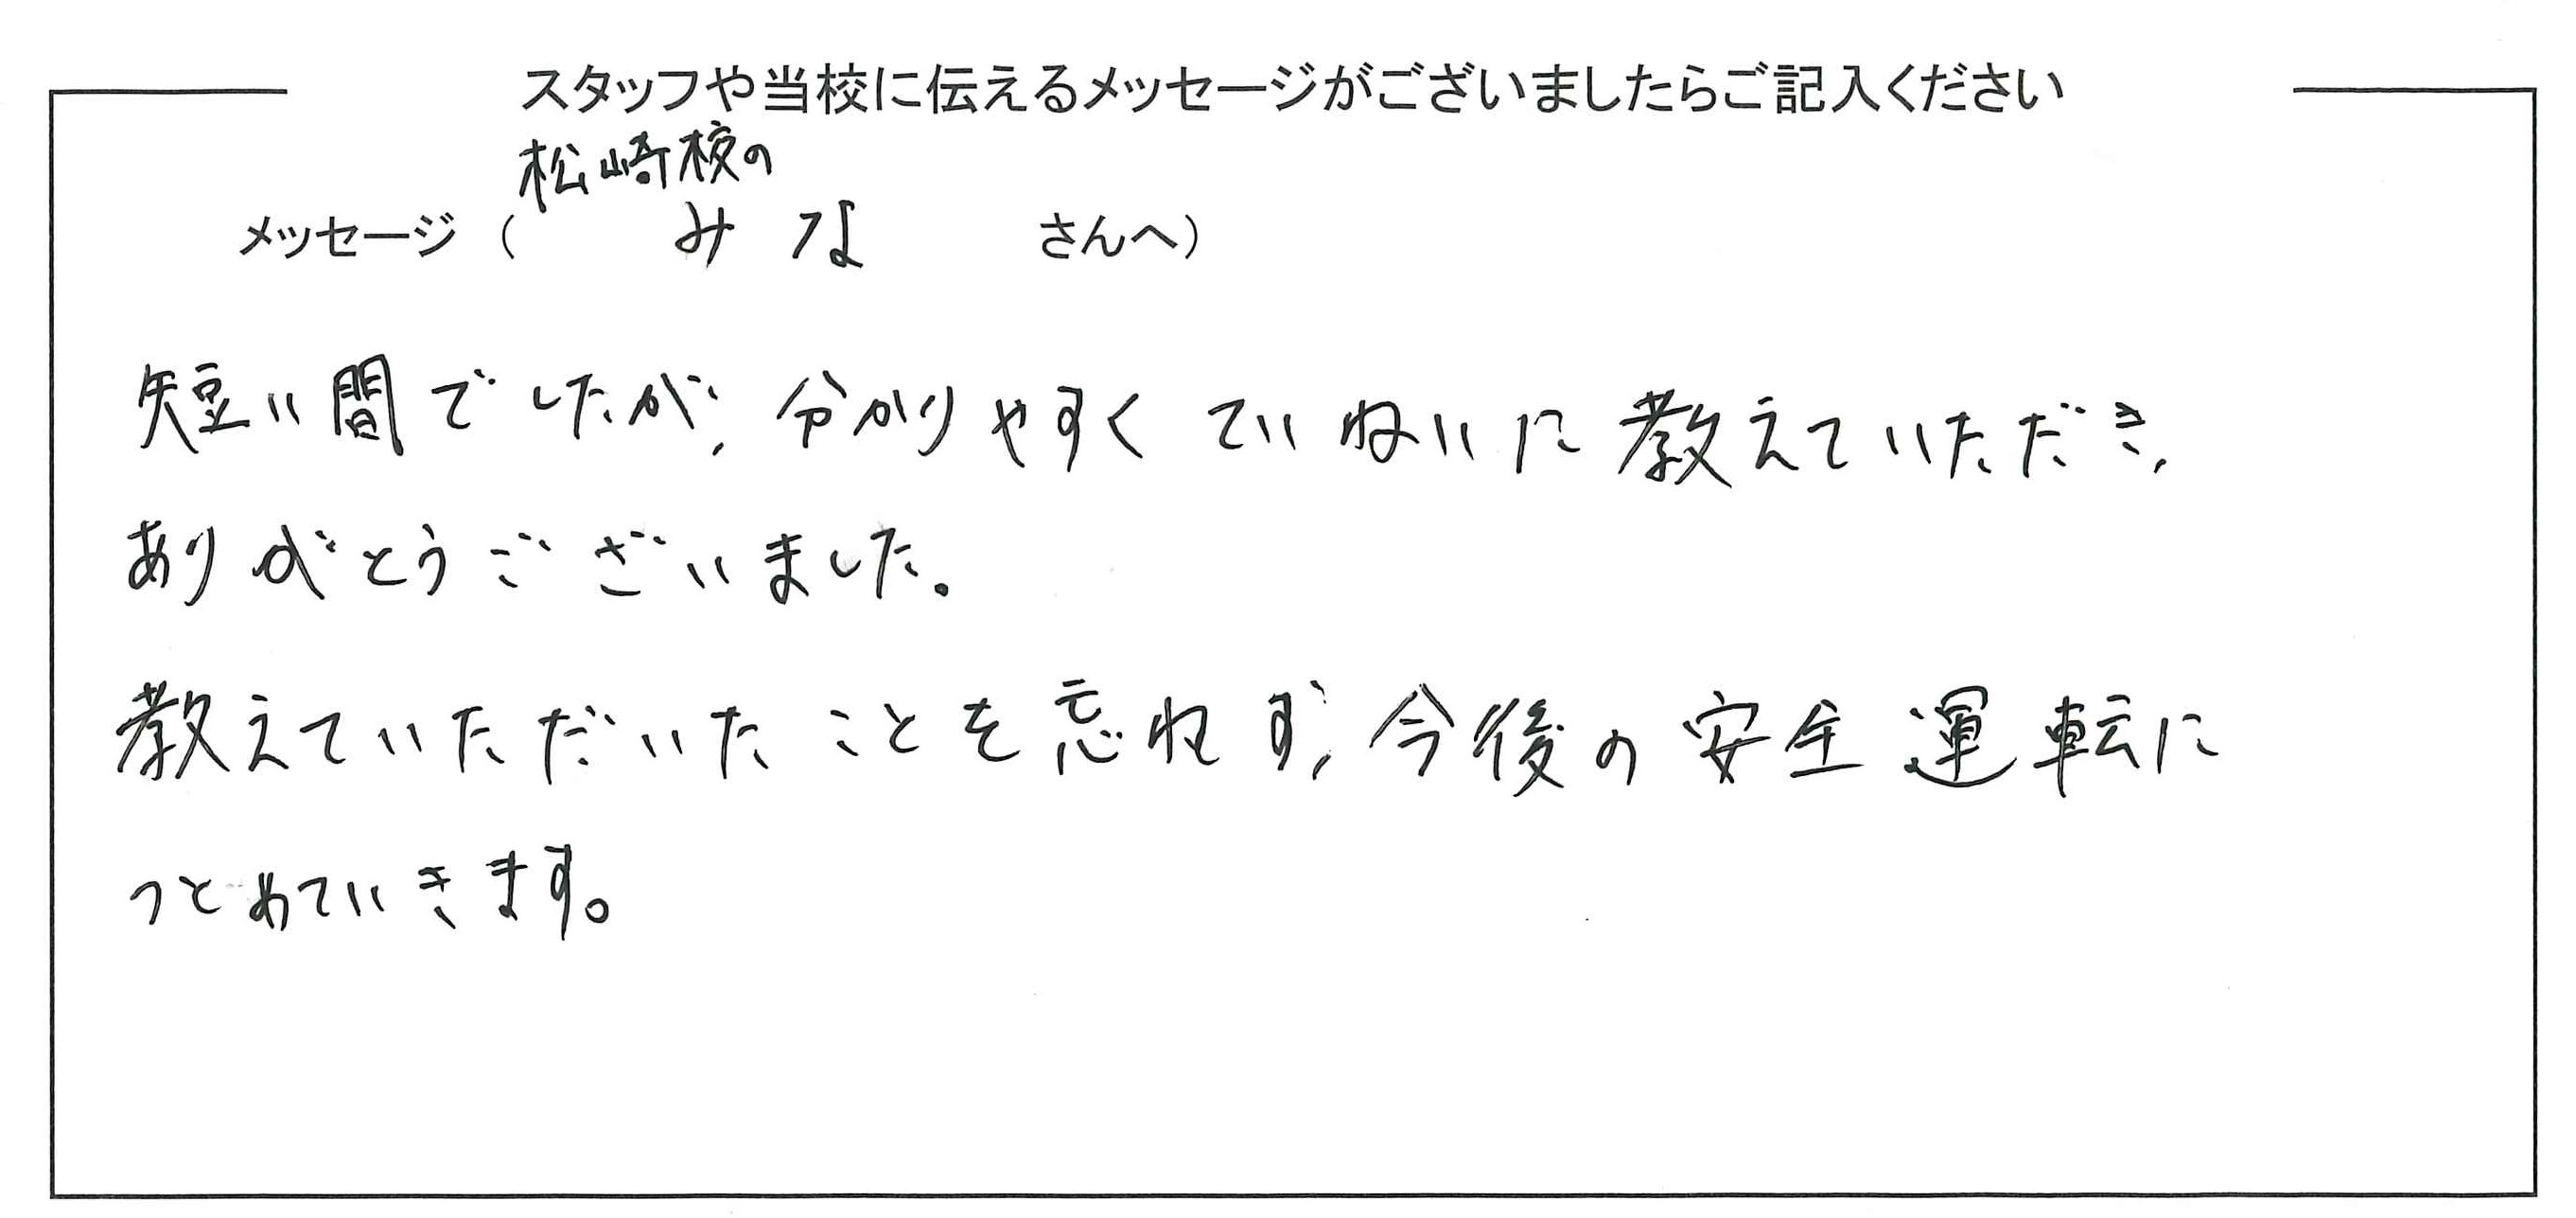 スタッフや当校に伝えるメッセージがございましたらご記入ください
松崎校の
メッセージ（ みな さんへ）
短い間でしたが、分かりやすくていねいに教えていただき、
ありがとうございました。
教えていただいたことを忘れず、今後の安全運転に
つとめていきます。